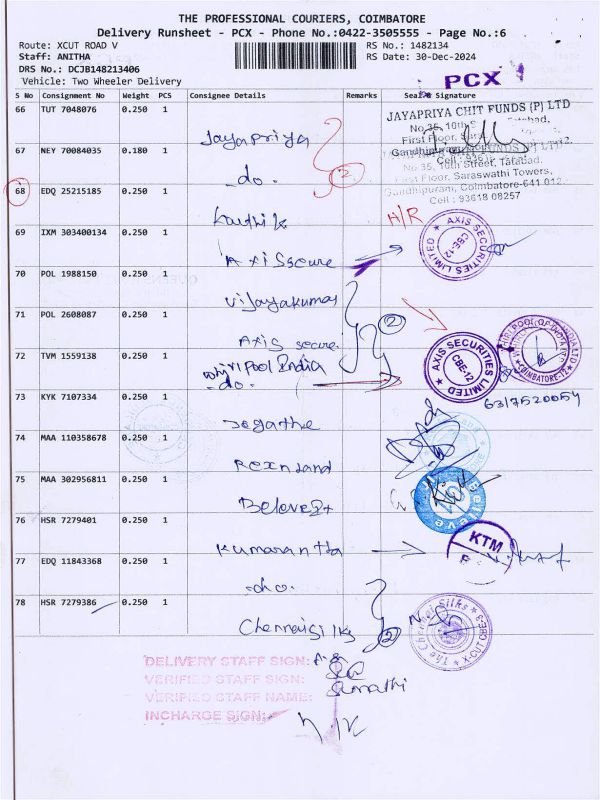 THE PROFESSIONAL COURIERS, COIMBATORE
Delivery Runsheet - PCX - Phone No.:0422-3505555 - Page No.:6
Route: XCUT ROAD V
RS No.: 1482134
Staff: ANITHA
RS Date: 30-Dec-2024
DRS No.: DCJB148213406
Vehicle: Two Wheeler Delivery
PCX
S No Consignment No Weight PCS Consignee Details Remarks Seal & Signature
66 TUT 7048076 0.250 1
Jayapriya
JAYAPRIYA CHIT FUNDS (P) LTD
No.35, 10th S
First Floor,
67 NEY 70084035 0.180 1
do.
2
No 35, 10th Street, Tatabad,
First Floor, Saraswathi Towers,
Gandhipuram, Coimbatore-641 012.
Cell : 93618 08257
68 EDQ 25215185 0.250 1
Karthik
H/R
69 IXM 303400134 0.250 1
Axis secure
AXIS SECURITIES LIMITED
CBE-12
70 POL 1988150 0.250 1
Vijayakumar
71 POL 2608087 0.250 1
Axis secure.
2
72 TVM 1559138 0.250 1
Whirlpool India
-do-
AXIS SECURITIES LIMITED
CBE-12
COIMBATORE-12
6317520054
73 KYK 7107334 0.250 1
74 MAA 110358678 0.250 1
Rexnland
75 MAA 302956811 0.250 1
76 HSR 7279401 0.250 1
KTM
77 EDQ 11843368 0.250 1
78 HSR 7279386 0.250 1
Chennai silks
2
The Chennai Silks
DELIVERY STAFF SIGN:
VERIFIED STAFF SIGN:
VERIFIED STAFF NAME:
Sumathi
INCHARGE SIGN: